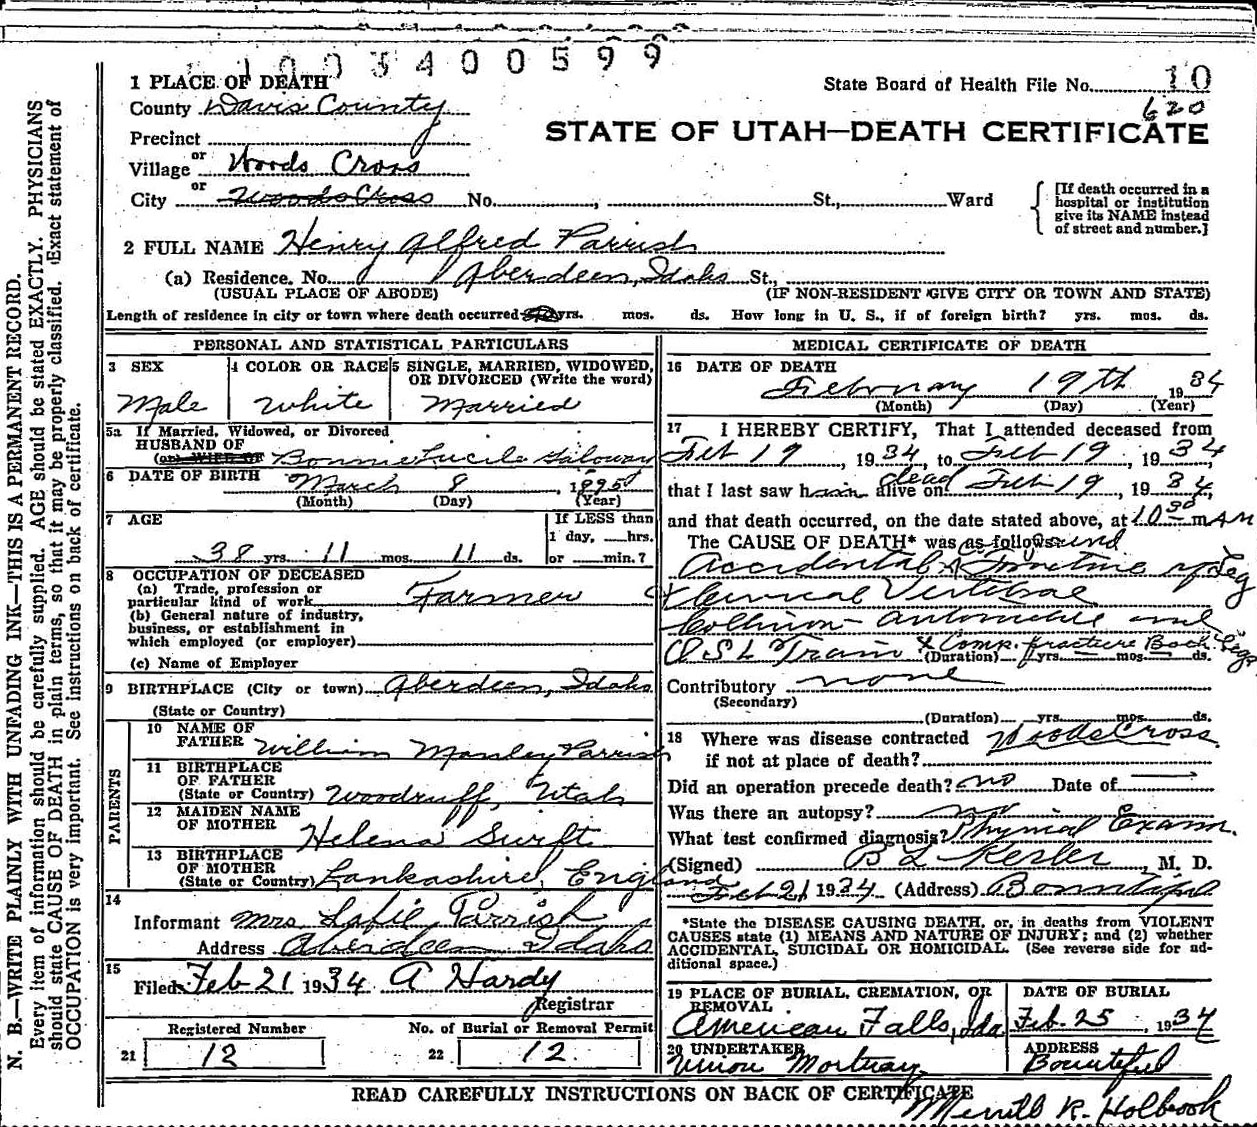 1003400599
1 PLACE OF DEATH
State Board of Health File No. 10
County Davis County
620
Precinct
STATE OF UTAH—DEATH CERTIFICATE
or
Village Woods Cross
or
City Woods Cross No. , St., Ward
[If death occurred in a
hospital or institution
give its NAME instead
of street and number.]
2 FULL NAME Henry Alfred Parrish
(a) Residence. No. Aberdeen, Idaho St.,
(USUAL PLACE OF ABODE) (IF NON-RESIDENT GIVE CITY OR TOWN AND STATE)
Length of residence in city or town where death occurred yrs. mos. ds. How long in U. S., if of foreign birth? yrs. mos. ds.
PERSONAL AND STATISTICAL PARTICULARS
3 SEX
Male
4 COLOR OR RACE
White
5 SINGLE, MARRIED, WIDOWED,
OR DIVORCED (Write the word)
Married
5a If Married, Widowed, or Divorced
HUSBAND OF
(or) WIFE OF Bonnie Lucile
6 DATE OF BIRTH March 8, 1895
(Month) (Day) (Year)
7 AGE
38 yrs. 11 mos. 11 ds.
If LESS than
1 day, hrs.
or min.?
8 OCCUPATION OF DECEASED
(a) Trade, profession or
particular kind of work Farmer
(b) General nature of industry,
business, or establishment in
which employed (or employer)
(c) Name of Employer
9 BIRTHPLACE (City or town) Aberdeen, Idaho
(State or Country)
PARENTS
10 NAME OF
FATHER William Manley Parrish
11 BIRTHPLACE
OF FATHER
(State or Country) Woodruff, Utah
12 MAIDEN NAME
OF MOTHER Helena Swift
13 BIRTHPLACE
OF MOTHER
(State or Country) Lankashire, England
14
Informant Mrs Parrish
Address Aberdeen Idaho
15
Filed Feb 21 1934 A Hardy
Registrar
Registered Number No. of Burial or Removal Permit
21 12 22 12
MEDICAL CERTIFICATE OF DEATH
16 DATE OF DEATH
February 19th 1934
(Month) (Day) (Year)
17 I HEREBY CERTIFY, That I attended deceased from
Feb 19, 1934, to Feb 19, 1934,
dead
that I last saw him alive on Feb 19, 1934,
and that death occurred, on the date stated above, at 10 30 m AM
The CAUSE OF DEATH* was as follows:
Accidental Fracture of Leg
& Cervical Vertebrae
Collision - Automobile and
O S L Train & Comp. fracture Both Legs
(Duration) yrs. mos. ds.
Contributory none
(Secondary)
(Duration) yrs. mos. ds.
18 Where was disease contracted Woods Cross
if not at place of death?
Did an operation precede death? no Date of
Was there an autopsy? no
What test confirmed diagnosis? Physical Exam.
(Signed) , M. D.
Feb 21 1934 (Address) Bountiful
*State the DISEASE CAUSING DEATH, or, in deaths from VIOLENT
CAUSES state (1) MEANS AND NATURE OF INJURY; and (2) whether
ACCIDENTAL, SUICIDAL OR HOMICIDAL. (See reverse side for ad-
ditional space.)
19 PLACE OF BURIAL, CREMATION, OR
REMOVAL
American Falls, Ida
DATE OF BURIAL
Feb. 25, 1934
20 UNDERTAKER
Union Mortuary
ADDRESS
Bountiful
READ CAREFULLY INSTRUCTIONS ON BACK OF CERTIFICATE
Merrill R. Holbrook
N. B.—WRITE PLAINLY WITH UNFADING INK—THIS IS A PERMANENT RECORD.
Every item of information should be carefully supplied. AGE should be stated EXACTLY. PHYSICIANS
should state CAUSE OF DEATH in plain terms, so that it may be properly classified. Exact statement of
OCCUPATION is very important. See instructions on back of certificate.